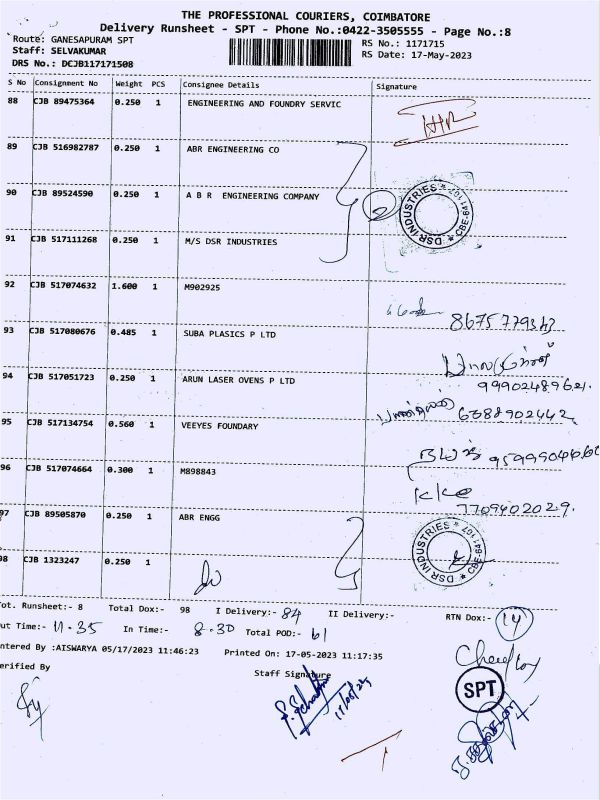 THE PROFESSIONAL COURIERS, COIMBATORE
Delivery Runsheet - SPT - Phone No.:0422-3505555 - Page No.:8
Route: GANESAPURAM SPT
Staff: SELVAKUMAR
DRS No.: DCJB117171508
RS No.: 1171715
RS Date: 17-May-2023
S No Consignment No Weight PCS Consignee Details Signature
88 CJB 89475364 0.250 1 ENGINEERING AND FOUNDRY SERVIC
89 CJB 516982787 0.250 1 ABR ENGINEERING CO
90 CJB 89524590 0.250 1 A B R ENGINEERING COMPANY
DSR INDUSTRIES * CBE-641107 *
91 CJB 517111268 0.250 1 M/S DSR INDUSTRIES
92 CJB 517074632 1.600 1 M902925
8675779343
93 CJB 517080676 0.485 1 SUBA PLASICS P LTD
94 CJB 517051723 0.250 1 ARUN LASER OVENS P LTD
9990248962
6388902442
95 CJB 517134754 0.560 1 VEEYES FOUNDARY
96 CJB 517074664 0.300 1 M898843
7709402029
97 CJB 89505870 0.250 1 ABR ENGG
DSR INDUSTRIES * CBE-641107 *
98 CJB 1323247 0.250 1
Tot. Runsheet:- 8 Total Dox:- 98 I Delivery:- 84 II Delivery:- RTN Dox:- 14
Out Time:- 11.35 In Time:- 8.30 Total POD:- 61
Entered By :AISWARYA 05/17/2023 11:46:23 Printed On: 17-05-2023 11:17:35
Verified By Staff Signature
SPT